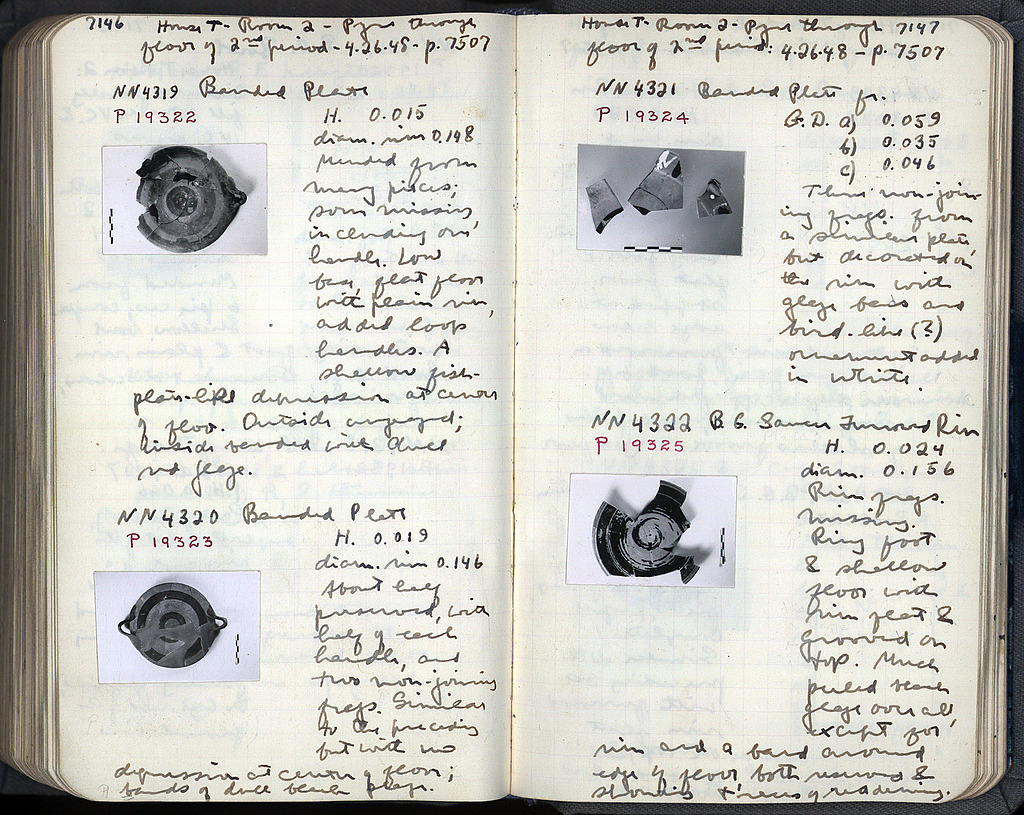 7146 House T - Room 2 - Pyre through
floor of 2nd period - 4.26.48 - p. 7507
NN4319 Banded Plate
P 19322 H. 0.015
diam. rim 0.148
Mended from
many pieces;
some missing,
including one
handle. Low
base, flat floor
with plain rim,
added loop
handles. A
shallow fish-
plate-like depression at center
of floor. Outside unglazed;
inside banded with dull
red glaze.
NN4320 Banded Plate
P 19323 H. 0.019
diam. rim 0.146
About half
preserved, with
half of each
handle, and
two non-joining
frags. Similar
to the preceding
but with no
depression at center of floor;
bands of dull black glaze.
House T - Room 2 - Pyre through 7147
floor of 2nd period: 4.26.48 - p. 7507
NN4321 Banded Plate fr.
P 19324 G.D. a) 0.059
b) 0.035
c) 0.046
Three non-join-
ing frags. from
a similar plate
but decorated on
the rim with
glaze bands and
bird-like (?)
ornament added
in white.
NN4322 B.G. Saucer Furrowed Rim
P 19325 H. 0.024
diam. 0.156
Rim frags.
missing.
Ring foot
& shallow
floor with
rim flat &
grooved on
top. Much
peeled black
glaze over all,
except for
rim and a band around
edge of floor both reserved &
showing traces of reddening.